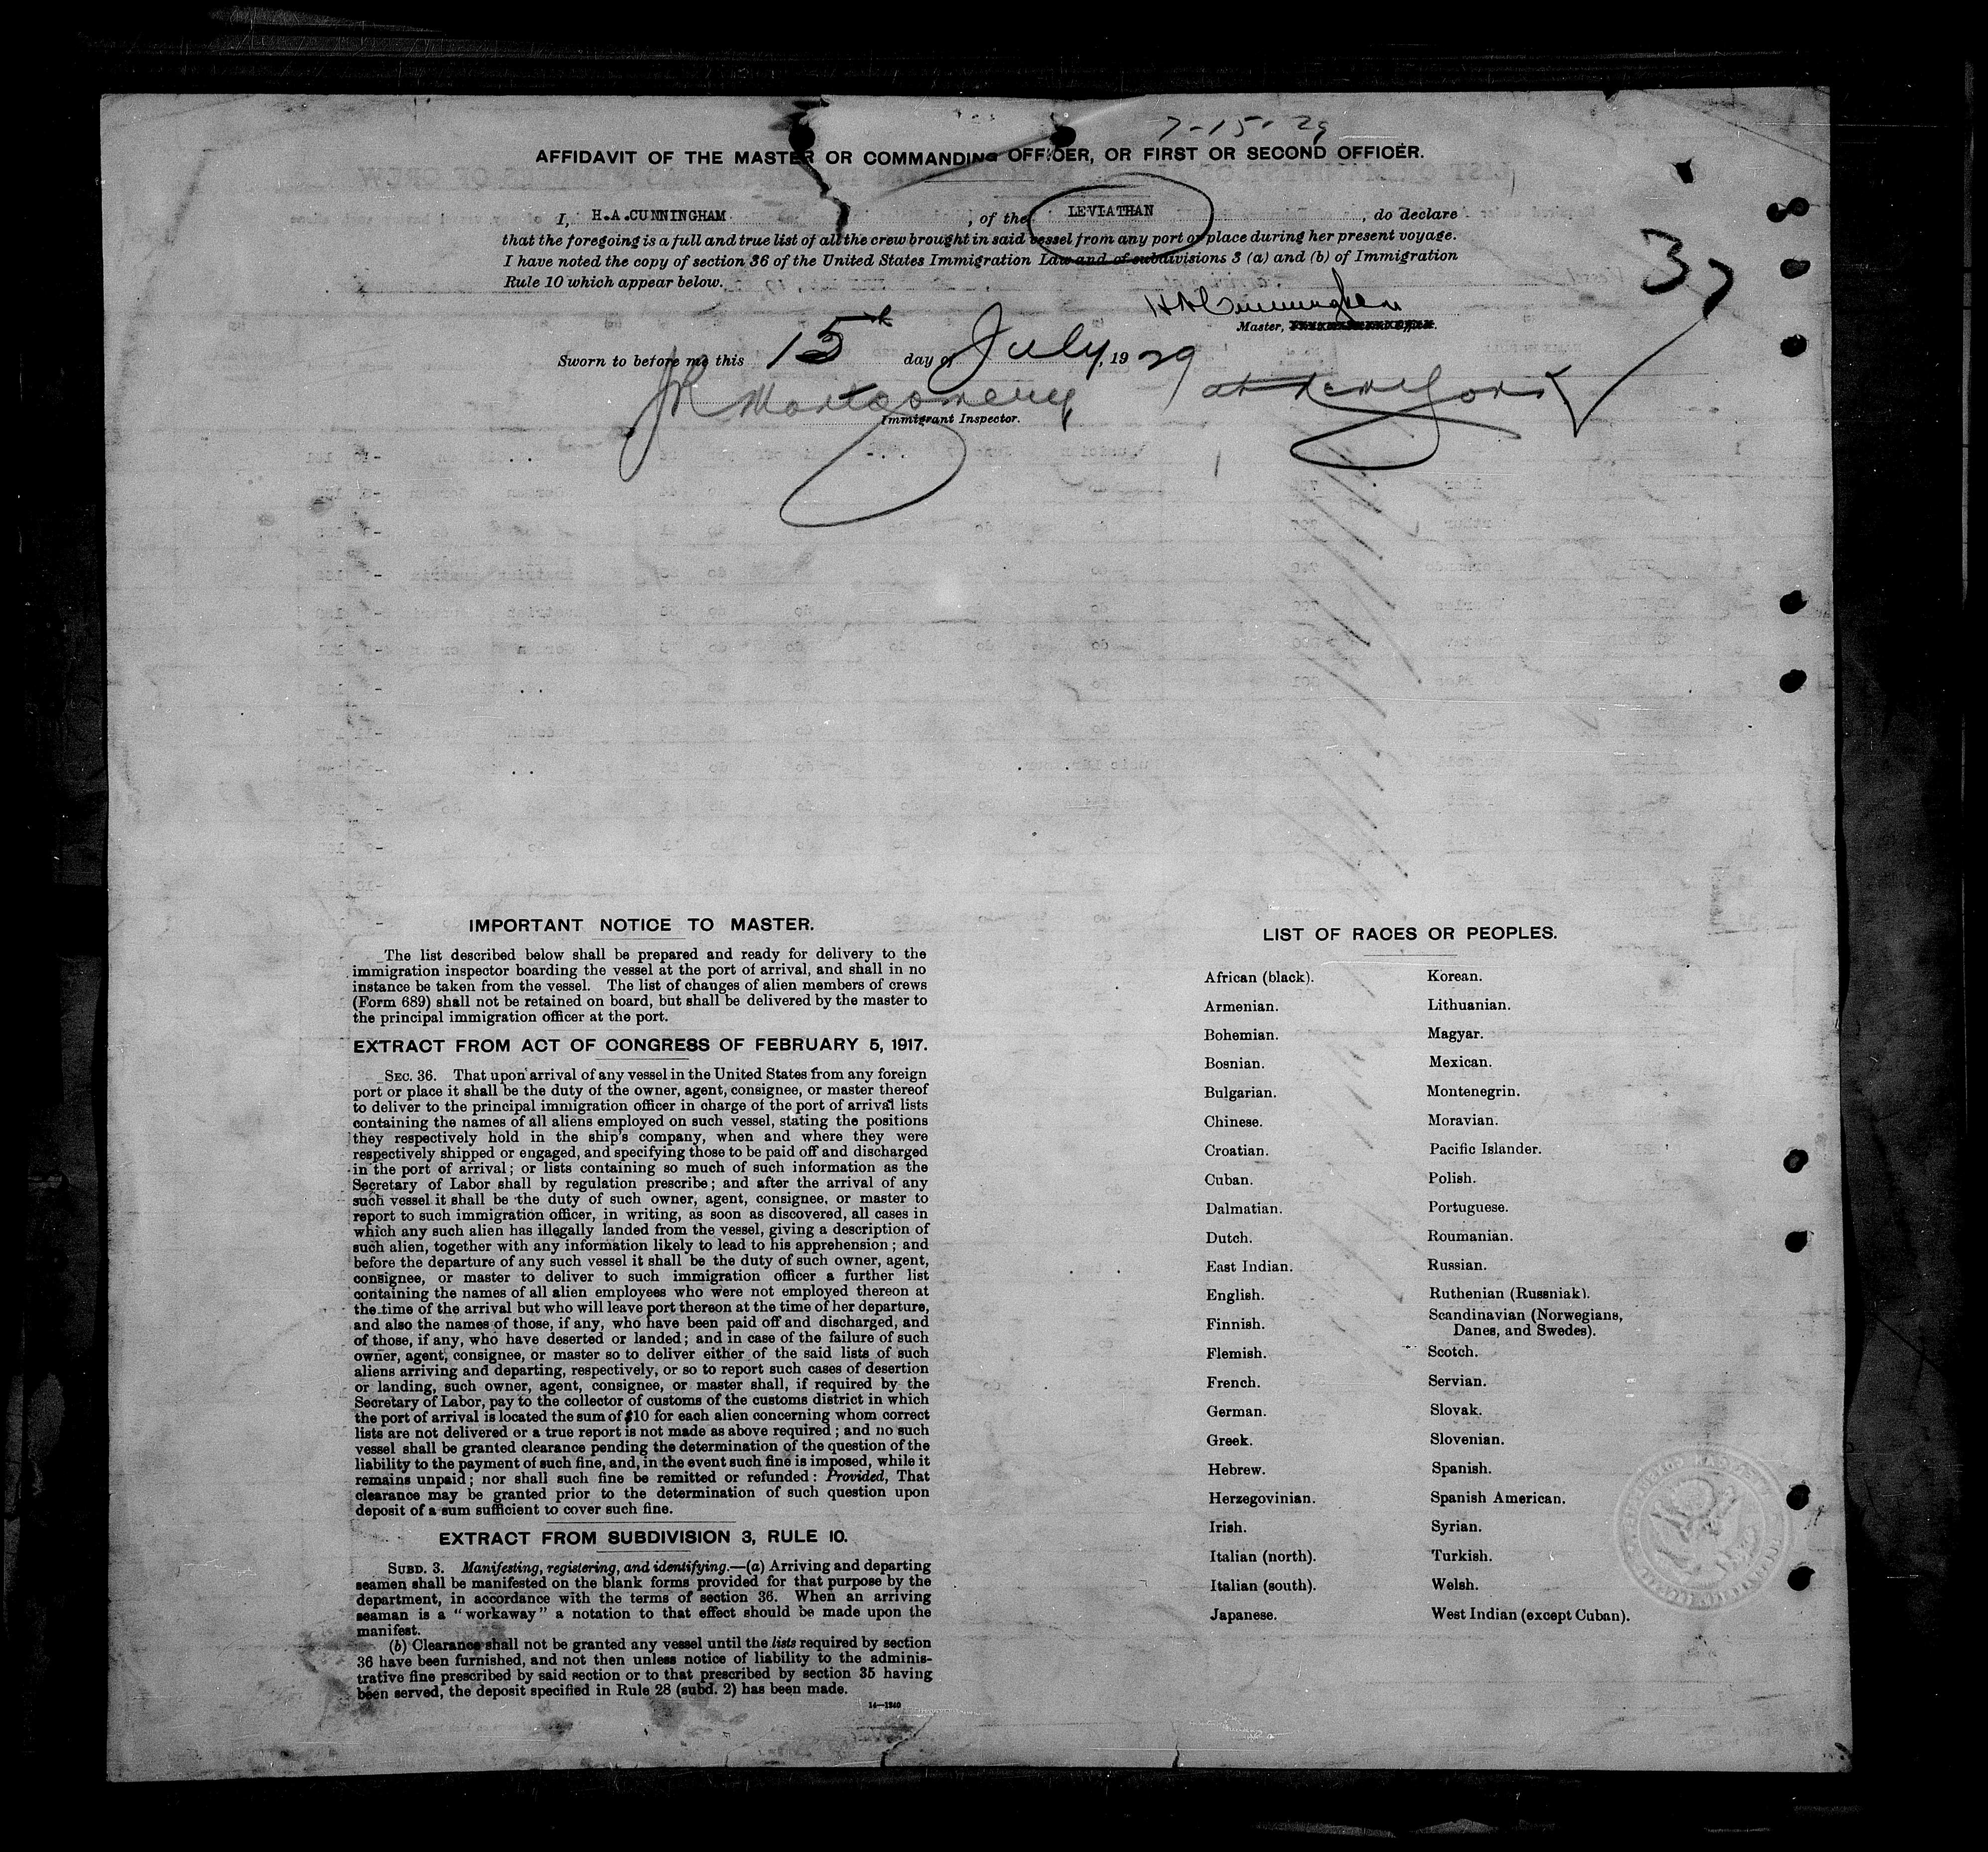 7-15-29
AFFIDAVIT OF THE MASTER OR COMMANDING OFFICER, OR FIRST OR SECOND OFFICER.
I, H.A.CUNNINGHAM, of the LEVIATHAN, do declare
that the foregoing is a full and true list of all the crew brought in said vessel from any port or place during her present voyage.
I have noted the copy of section 36 of the United States Immigration Law and of subdivisions 3 (a) and (b) of Immigration
Rule 10 which appear below.
37
H A Cunningham
Master,
Sworn to before me this 15th day of July, 1929
JR Montgomery at New York
Immigrant Inspector.
IMPORTANT NOTICE TO MASTER.
The list described below shall be prepared and ready for delivery to the
immigration inspector boarding the vessel at the port of arrival, and shall in no
instance be taken from the vessel. The list of changes of alien members of crews
(Form 689) shall not be retained on board, but shall be delivered by the master to
the principal immigration officer at the port.
EXTRACT FROM ACT OF CONGRESS OF FEBRUARY 5, 1917.
SEC. 36. That upon arrival of any vessel in the United States from any foreign
port or place it shall be the duty of the owner, agent, consignee, or master thereof
to deliver to the principal immigration officer in charge of the port of arrival lists
containing the names of all aliens employed on such vessel, stating the positions
they respectively hold in the ship's company, when and where they were
respectively shipped or engaged, and specifying those to be paid off and discharged
in the port of arrival; or lists containing so much of such information as the
Secretary of Labor shall by regulation prescribe; and after the arrival of any
such vessel it shall be the duty of such owner, agent, consignee, or master to
report to such immigration officer, in writing, as soon as discovered, all cases in
which any such alien has illegally landed from the vessel, giving a description of
such alien, together with any information likely to lead to his apprehension; and
before the departure of any such vessel it shall be the duty of such owner, agent,
consignee, or master to deliver to such immigration officer a further list
containing the names of all alien employees who were not employed thereon at
the time of the arrival but who will leave port thereon at the time of her departure,
and also the names of those, if any, who have been paid off and discharged, and
of those, if any, who have deserted or landed; and in case of the failure of such
owner, agent, consignee, or master so to deliver either of the said lists of such
aliens arriving and departing, respectively, or so to report such cases of desertion
or landing, such owner, agent, consignee, or master shall, if required by the
Secretary of Labor, pay to the collector of customs of the customs district in which
the port of arrival is located the sum of $10 for each alien concerning whom correct
lists are not delivered or a true report is not made as above required; and no such
vessel shall be granted clearance pending the determination of the question of the
liability to the payment of such fine, and, in the event such fine is imposed, while it
remains unpaid; nor shall such fine be remitted or refunded: Provided, That
clearance may be granted prior to the determination of such question upon
deposit of a sum sufficient to cover such fine.
EXTRACT FROM SUBDIVISION 3, RULE 10.
SUBD. 3. Manifesting, registering, and identifying.—(a) Arriving and departing
seamen shall be manifested on the blank forms provided for that purpose by the
department, in accordance with the terms of section 36. When an arriving
seaman is a "workaway" a notation to that effect should be made upon the
manifest.
(b) Clearance shall not be granted any vessel until the lists required by section
36 have been furnished, and not then unless notice of liability to the adminis-
trative fine prescribed by said section or to that prescribed by section 35 having
been served, the deposit specified in Rule 28 (subd. 2) has been made.
14—1240
LIST OF RACES OR PEOPLES.
African (black).
Armenian.
Bohemian.
Bosnian.
Bulgarian.
Chinese.
Croatian.
Cuban.
Dalmatian.
Dutch.
East Indian.
English.
Finnish.
Flemish.
French.
German.
Greek.
Hebrew.
Herzegovinian.
Irish.
Italian (north).
Italian (south).
Japanese.
Korean.
Lithuanian.
Magyar.
Mexican.
Montenegrin.
Moravian.
Pacific Islander.
Polish.
Portuguese.
Roumanian.
Russian.
Ruthenian (Russniak).
Scandinavian (Norwegians,
Danes, and Swedes).
Scotch.
Servian.
Slovak.
Slovenian.
Spanish.
Spanish American.
Syrian.
Turkish.
Welsh.
West Indian (except Cuban).